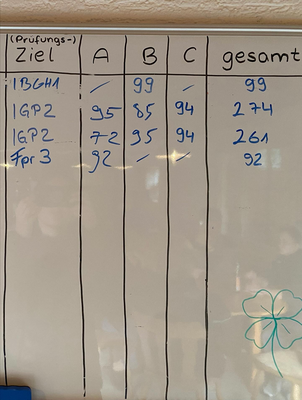 (Prüfungs-)
Ziel A B C gesamt
IBGH1 / 99 / 99
IGP2 95 85 94 274
IGP2 72 95 94 261
Fpr3 92 / / 92